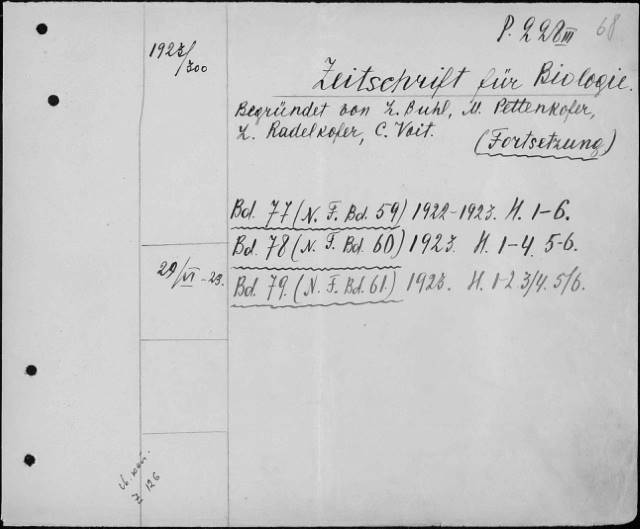 P. 228III 68
1923/300
Zeitschrift für Biologie.
Begründet von L. Buhl, M. Pettenkofer,
L. Radelkofer, C. Voit.
(Fortsetzung)
Bd. 77 (N. F. Bd. 59) 1922-1923. H. 1-6.
Bd. 78 (N. F. Bd. 60) 1923. H. 1-4. 5-6.
29/VI-23.
Bd. 79. (N. F. Bd. 61.) 1923. H. 1-2 3/4. 5/6.
126